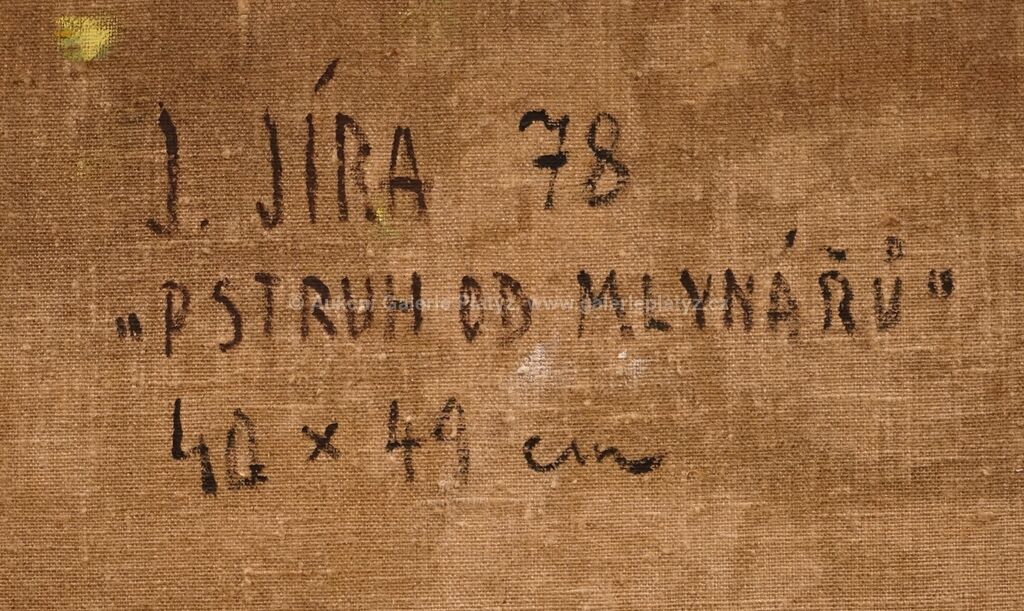 J. JÍRA 78
„PSTRUH OD MLYNÁŘŮ"
© Aukční Galerie Platýz, www.galerieplatyz.cz
40 x 49 cm